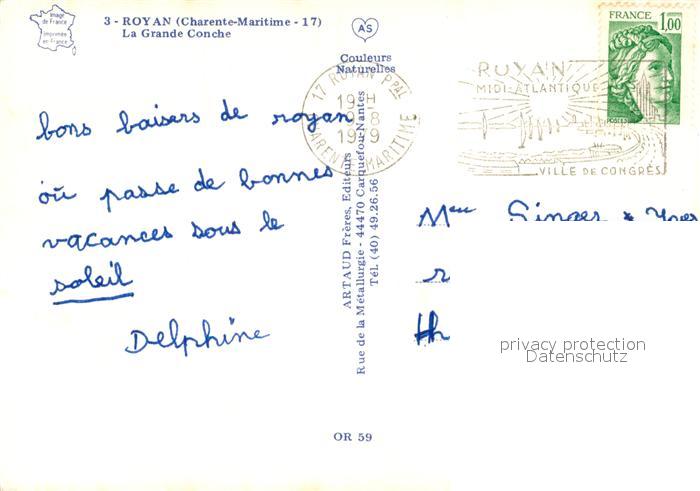 Image
de France
Imprimée
en France
3 - ROYAN (Charente-Maritime - 17)
La Grande Conche
AS
Couleurs
Naturelles
bons baisers de royan
où passe de bonnes
vacances sous le
soleil
Delphine
ARTAUD Frères, Editeurs
Rue de la Métallurgie - 44470 Carquefou-Nantes
Tél. (40) 49.26.56
17 ROYAN Ppal
19 H
8
1979
CHARENTE MARITIME
ROYAN
MIDI-ATLANTIQUE
VILLE DE CONGRÈS
FRANCE
1,00
POSTES
privacy protection
Datenschutz
OR 59